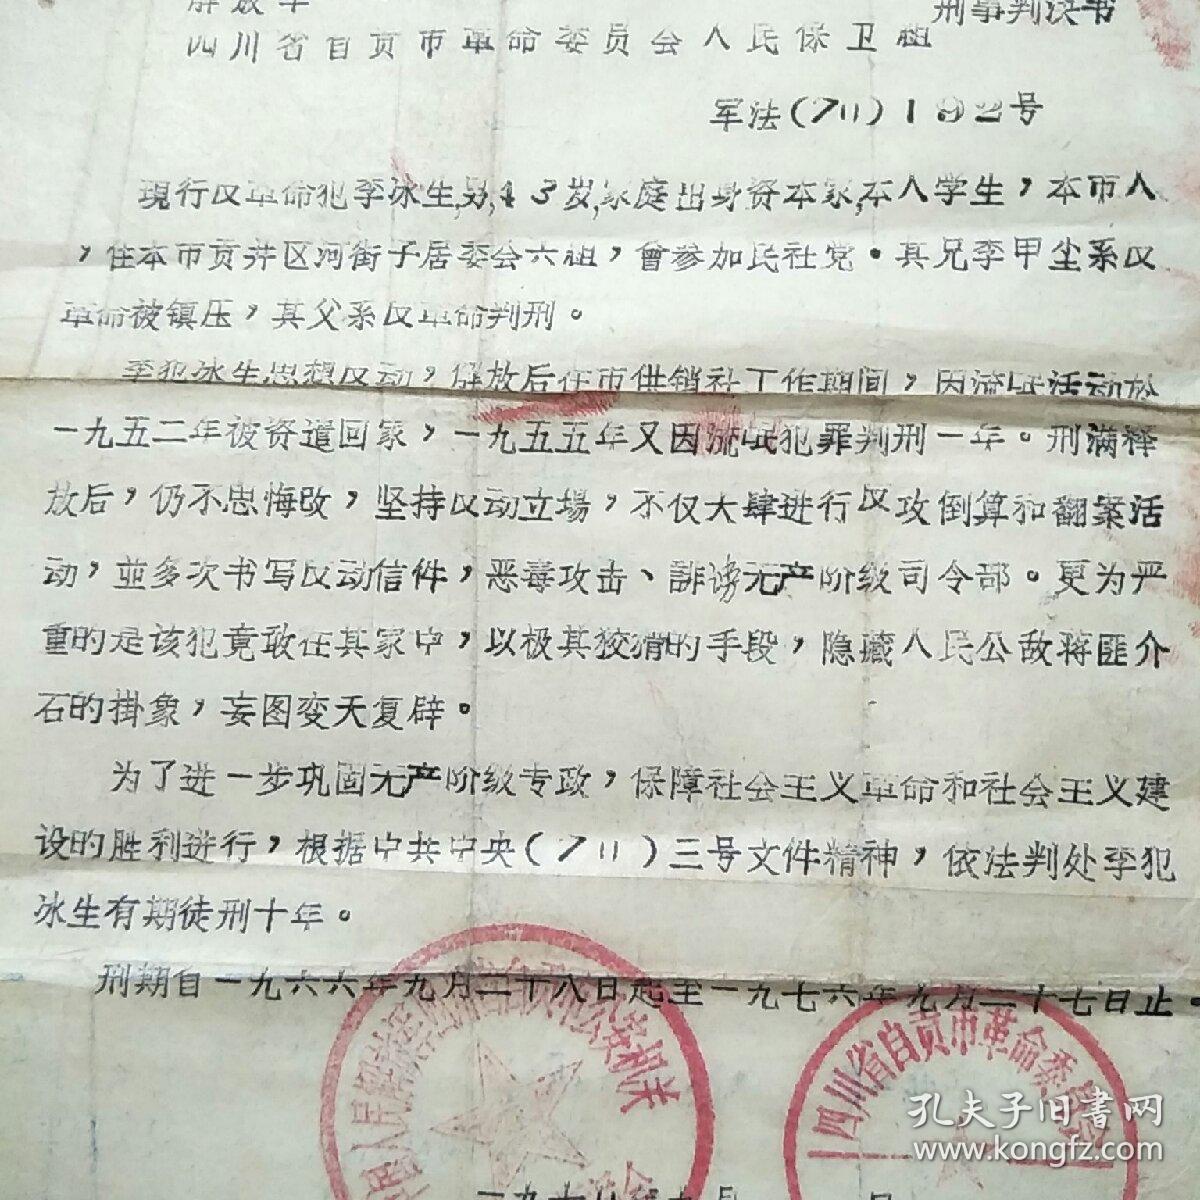 解放军
刑事判决书
四川省自贡市革命委员会人民保卫组
军法(70)192号
现行反革命犯李冰生,男,43岁,家庭出身资本家,本人学生,本市人
,住本市贡井区河街子居委会六组,曾参加民社党。其兄李甲尘系反
革命被镇压,其父系反革命判刑。
李犯冰生思想反动,解放后在市供销社工作期间,因流氓活动於
一九五二年被资遣回家,一九五五年又因流氓犯罪判刑一年。刑满释
放后,仍不思悔改,坚持反动立場,不仅大肆进行反攻倒算和翻案活
动,並多次书写反动信件,恶毒攻击、誹谤无产阶级司令部。更为严
重的是该犯竟敢在其家中,以极其狡猾的手段,隐藏人民公敌蒋匪介
石的掛象,妄图变天复辟。
为了进一步巩固无产阶级专政,保障社会主义革命和社会主义建
设的胜利进行,根据中共中央(70)三号文件精神,依法判处李犯
冰生有期徒刑十年。
刑期自一九六六年九月二十八日起至一九七六年九月二十七日止。
四川省自贡市革命委员会
孔夫子旧書网
www.kongfz.com